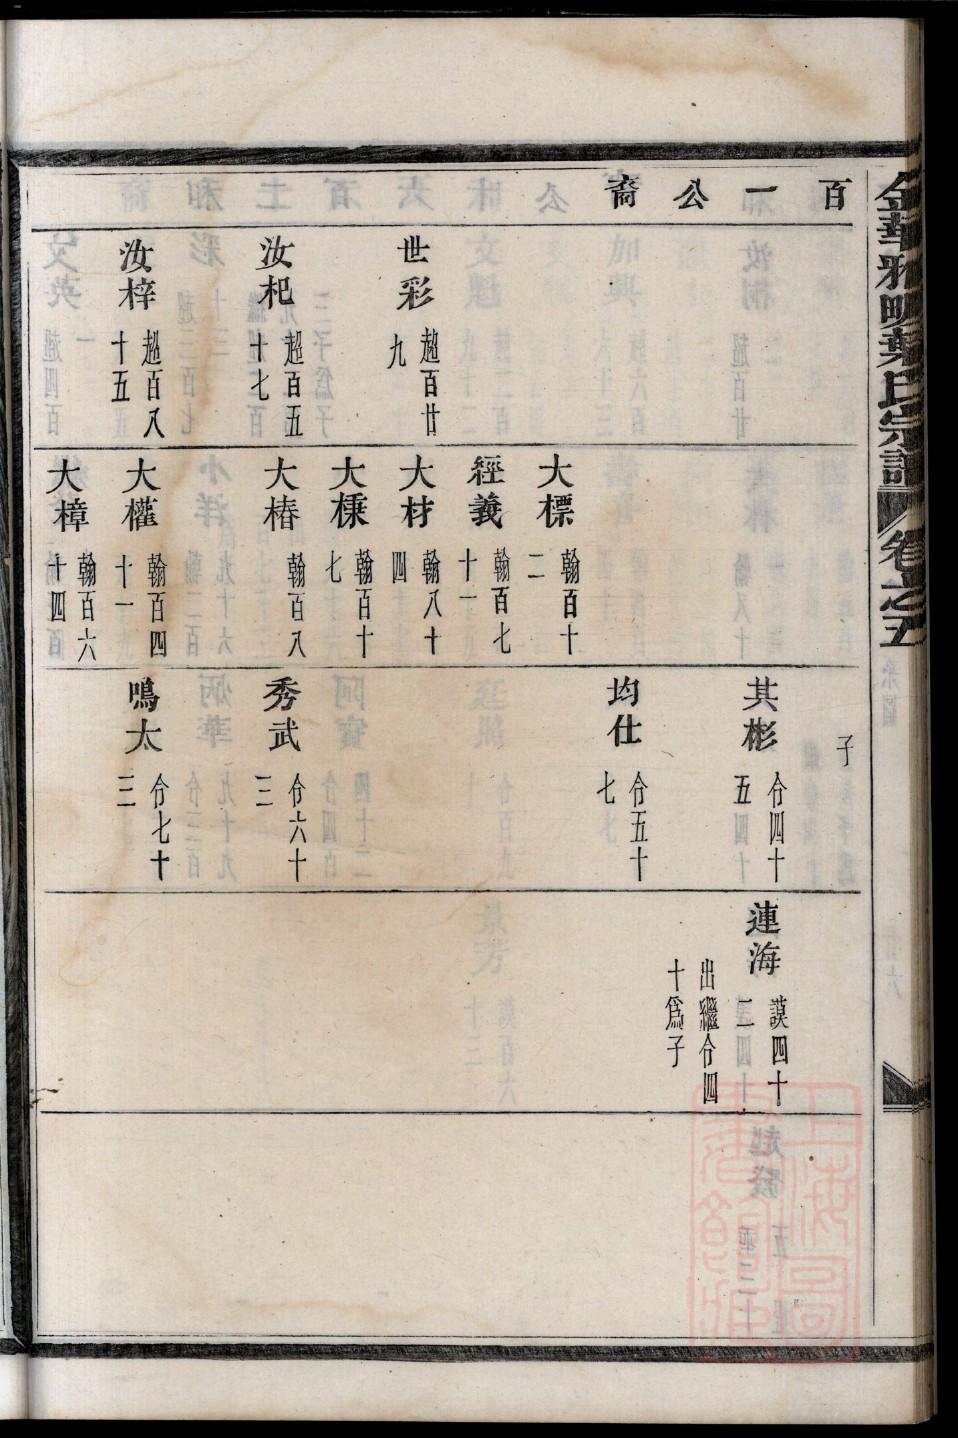 金華雅畈葉氏宗譜 卷之五
百一公裔
世彩 趨百廿九
汝杞 趨百五十七
汝梓 趨百八十五
大標 翰百十二
經義 翰百七十一
大材 翰八十四
大𣗳 翰百十七
大椿 翰百八
大權 翰百四十一
大樟 翰百六十四
子
其彬 仝四十五
均仕 仝五十七
秀武 仝六十三
鳴太 仝七十三
蓮海 謨四十二
出繼仝四十為子
上海圖書館藏